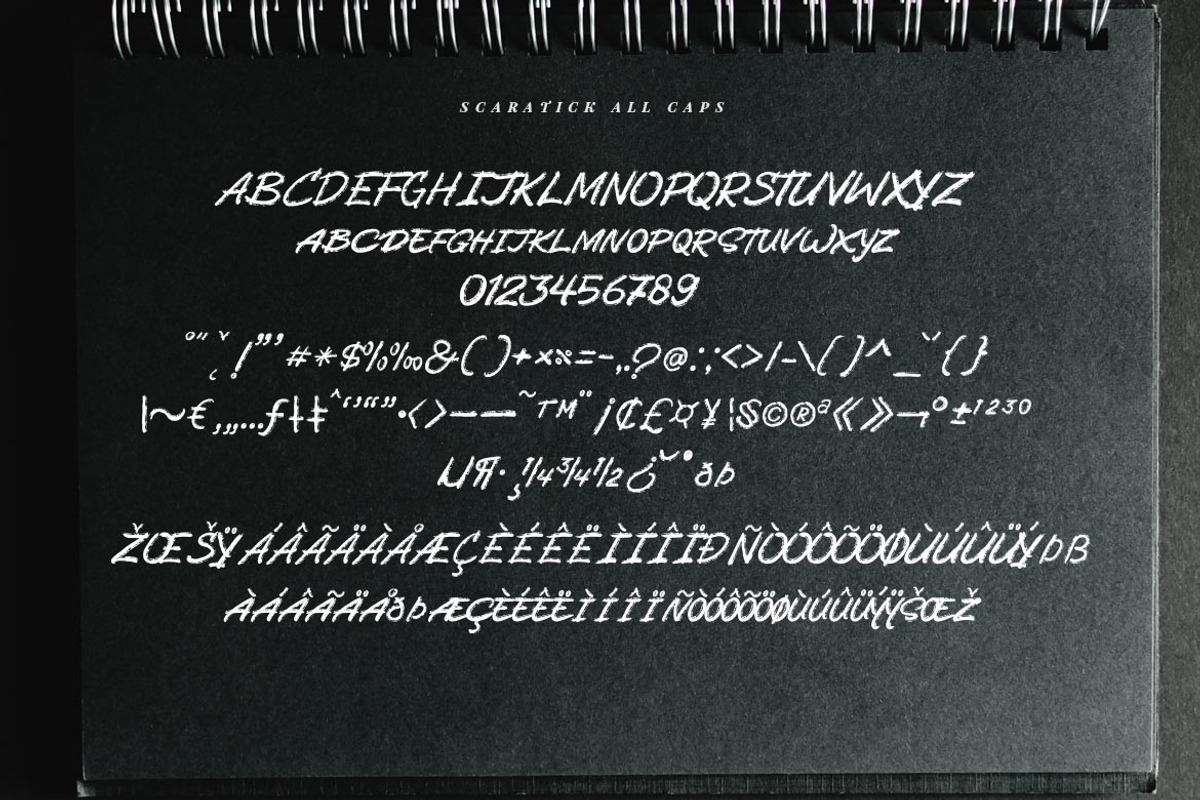 SCARATICK ALL CAPS
ABCDEFGHIJKLMNOPQRSTUVWXYZ
ABCDEFGHIJKLMNOPQRSTUVWXYZ
0123456789
°"˛ˇ!"'#*$%‰&()+×÷=-,.?@:;<>/-\()^_˘{}
|~€‚„…ƒ†‡ˆ‘’“”•‹›——˜™¨¡¢£¤¥¦§©®ª«»¬º±¹²³⁰
µ¶·¸¼¾½¿˘˙ðþ
ŽŒŠŸÁÂÃÄÀÅÆÇÈÉÊËÌÍÎÏÐÑÒÓÔÕÖØÙÚÛÜÝÞß
ÀÁÂÃÄÅðþÆÇÈÉÊËÌÍÎÏÑÒÓÔÕÖØÙÚÛÜÝŸŠŒŽ